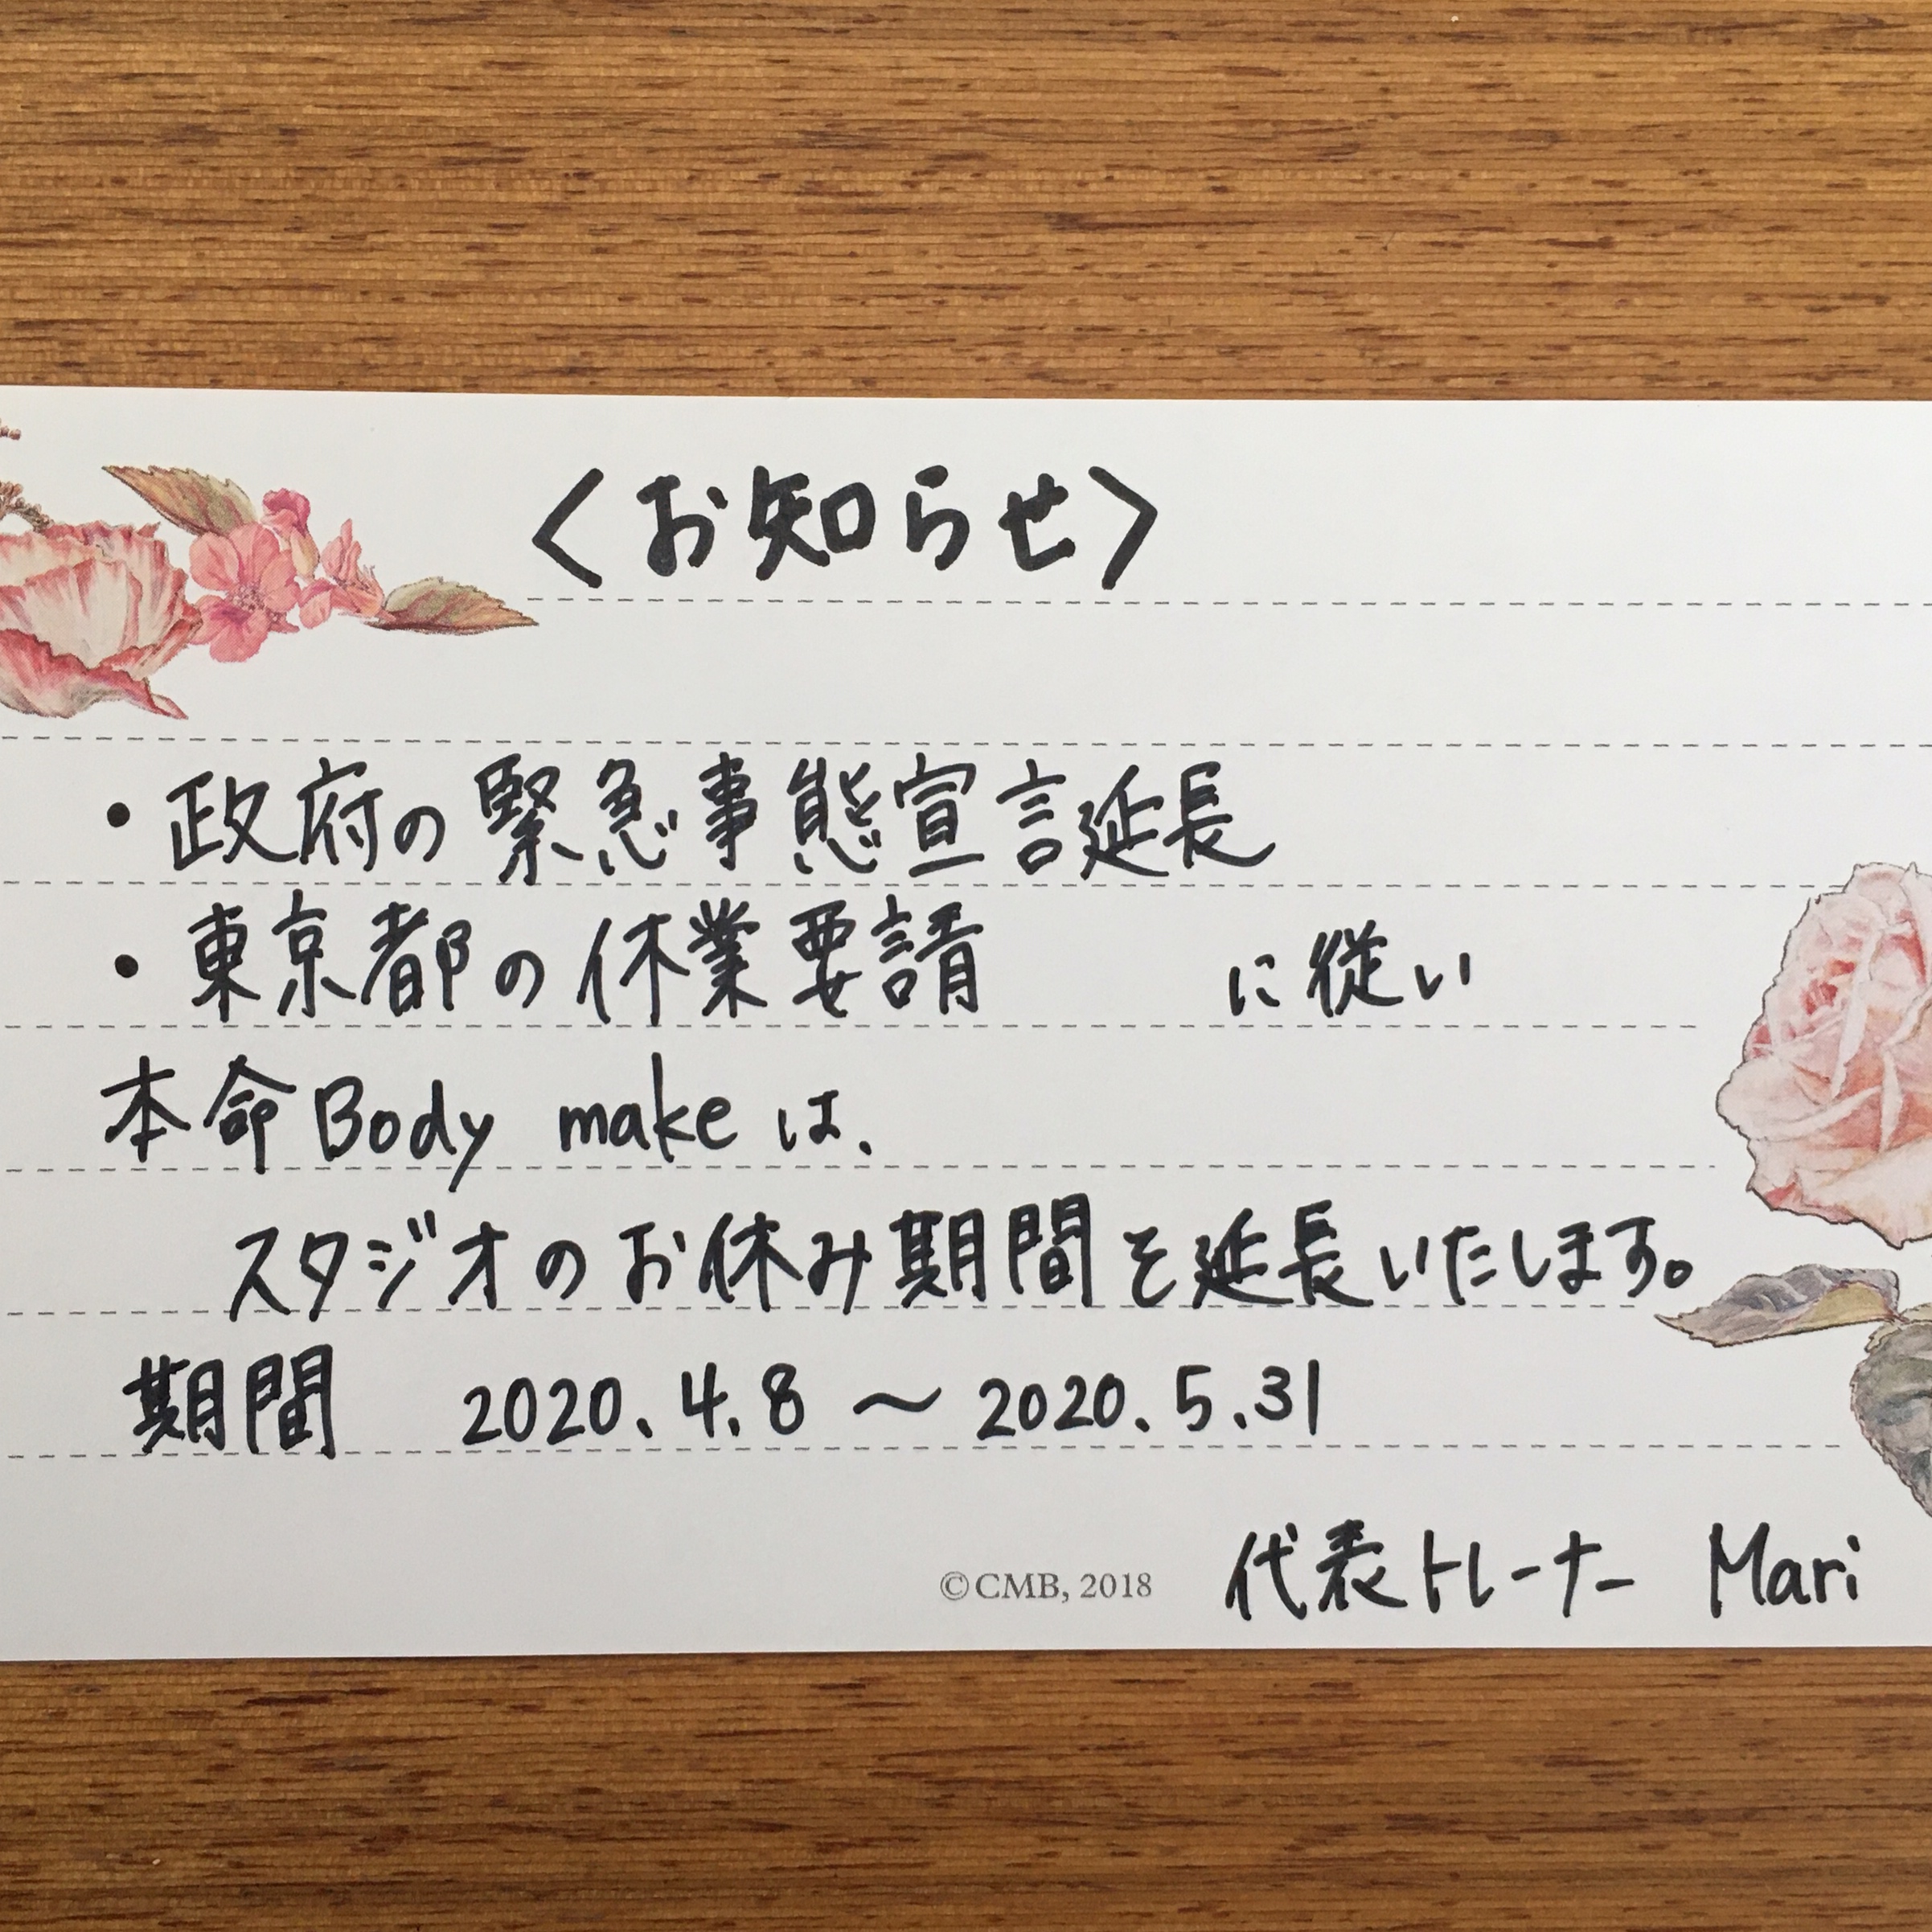 〈お知らせ〉
・政府の緊急事態宣言延長
・東京都の休業要請　　に従い
本命Body make は、
スタジオのお休み期間を延長いたします。
期間　2020.4.8 〜 2020.5.31
©CMB, 2018
代表トレーナー　Mari